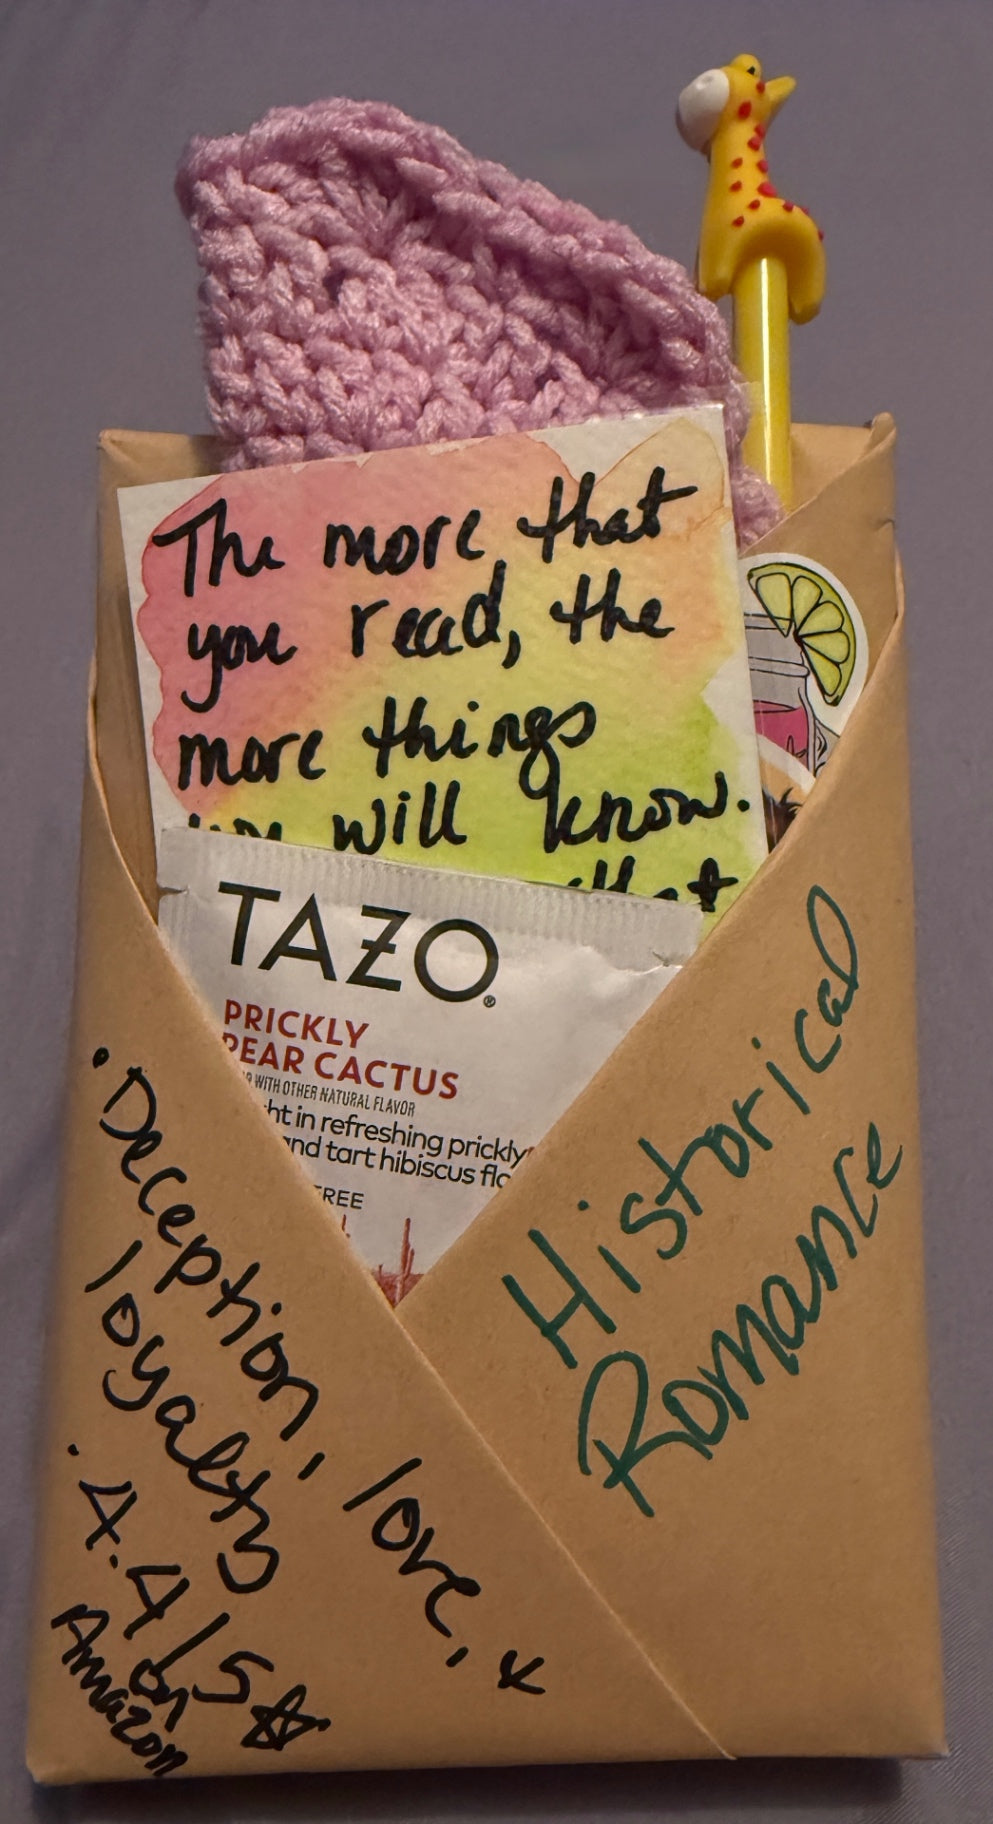 The more that
you read, the
more things
you will know.
that
TAZO®
PRICKLY
PEAR CACTUS
WITH OTHER NATURAL FLAVOR
in refreshing prickly
and tart hibiscus
FREE
Historical
Romance
• Deception, love, &
loyalty
• 4.4/5☆
on
Amazon